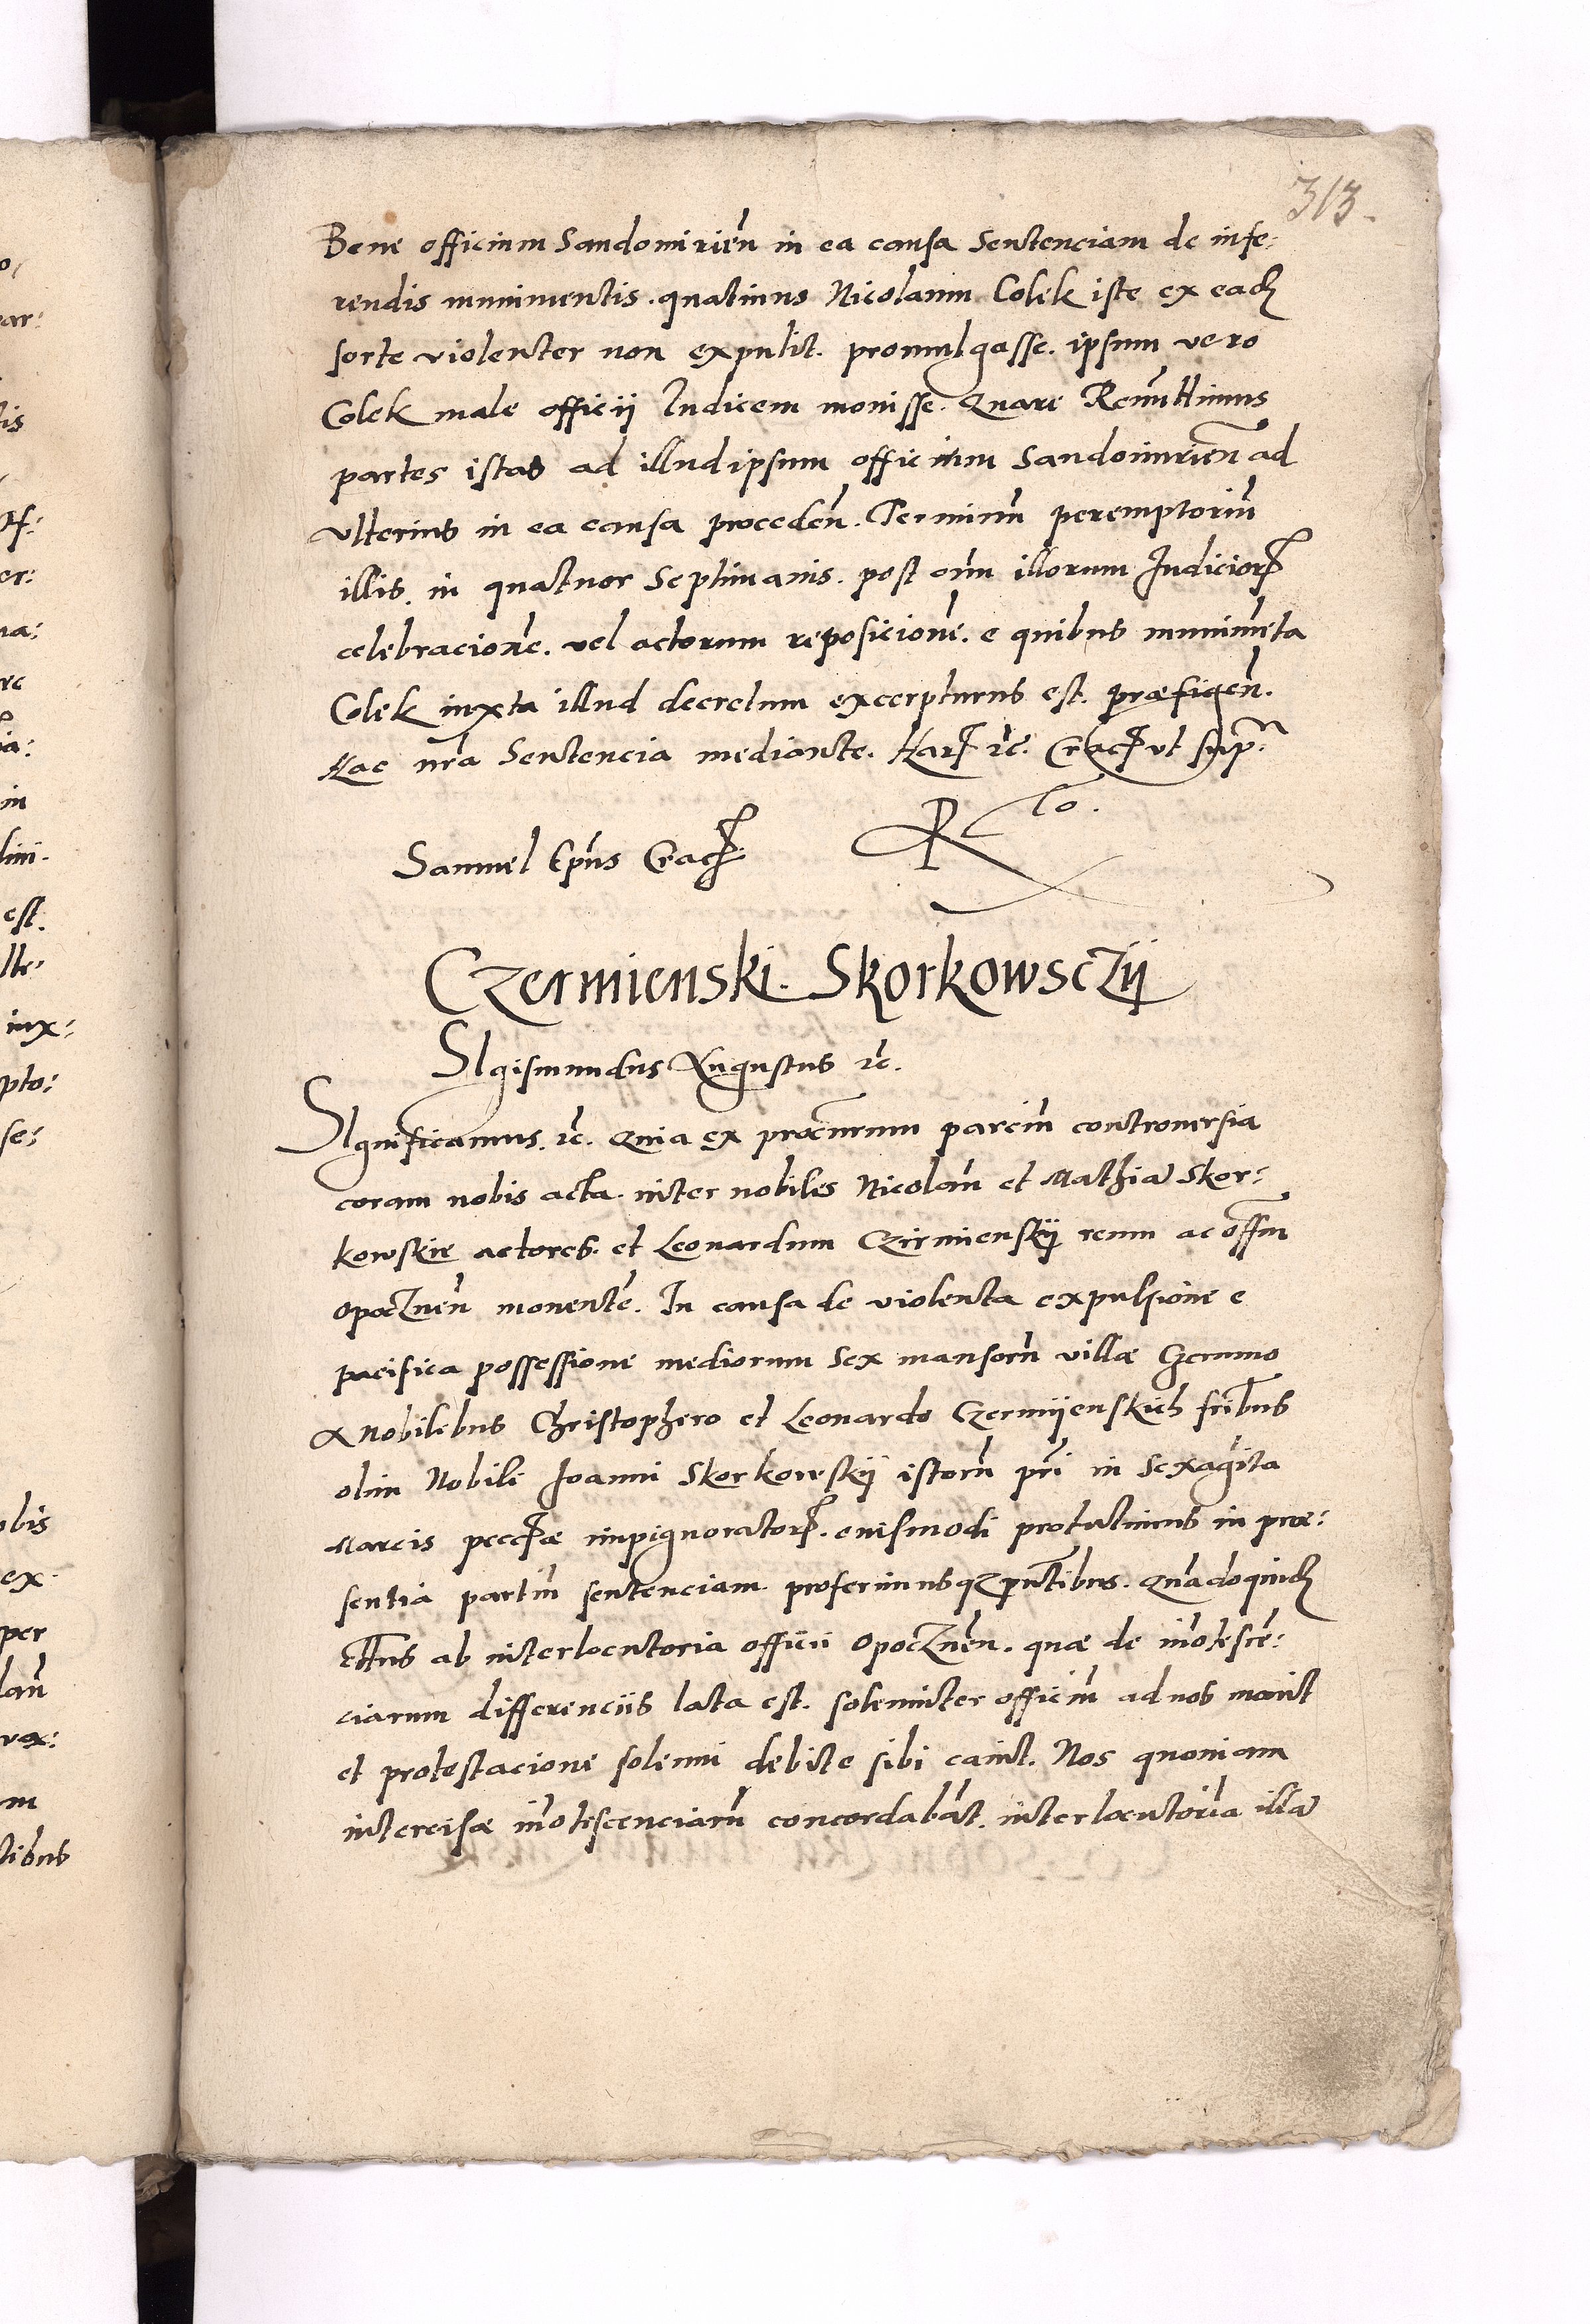 313.
Bene officium Sandomirien̄ in ea causa Sentenciam de infe:
rendis munimentis. quatinus Nicolaum Colek iste ex eadē
sorte violenter non expulit. promulgasse. ipsum vero
Colek male officij Iudicem monisse. Quare Remittimus
partes istas ad illud ipsum officium Sandomirien̄ ad
vlterius in ea causa proceden̄. Terminū peremptoriū
illis. in quatuor Septimanis. post om̄n illorum Iudicior̄
celebracionē. vel actorum reposicionē. e quibus munimēta
Colek iuxta illud decretum excerpturus est. præfigen̄.
Hac nr̄a Sentencia mediante. Har̄ ꝛc̄. Crac̄ vt sup.ᵃ
R to.
Samuel Ep̄us Crac̄
Czermienski. Skorkowsczÿ
SIgismundus Augustus ꝛc̄.
SIgnificamus. ꝛc̄. Quia ex procūrum parciū controuersia
coram nobis acta. inter nobiles Nicolaū et Mathiā Skor:
kowskie actores. et Leonardum Czirmienskÿ reum ac off̄m
opocznen̄ monentē. In causa de violenta expulsione e
pacifica possessione mediorum Sex mansorū villæ Czermno
a Nobilibus Christophero et Leonardo Czermÿenskich fr̄ibus
olim Nobili Joanni Skorkowskÿ istorū pr̄i in Sexagīta
Marcis pec̄c̄æ impignorator̄. eiusmodi protulimus in præ:
sentia partiū sentenciam. proferimusqꝫ pn̄tibus. Quādoquidē
Ct̄us ab interlocutoria officii opocznen̄. quæ de in̄otescē:
ciarum differenciis lata est. solemniter officiū ad nos mouit
et protestacione solenni debite sibi cauit. Nos quoniam
intercisæ in̄otescenciarū concordabāt. interlocutoriā illā